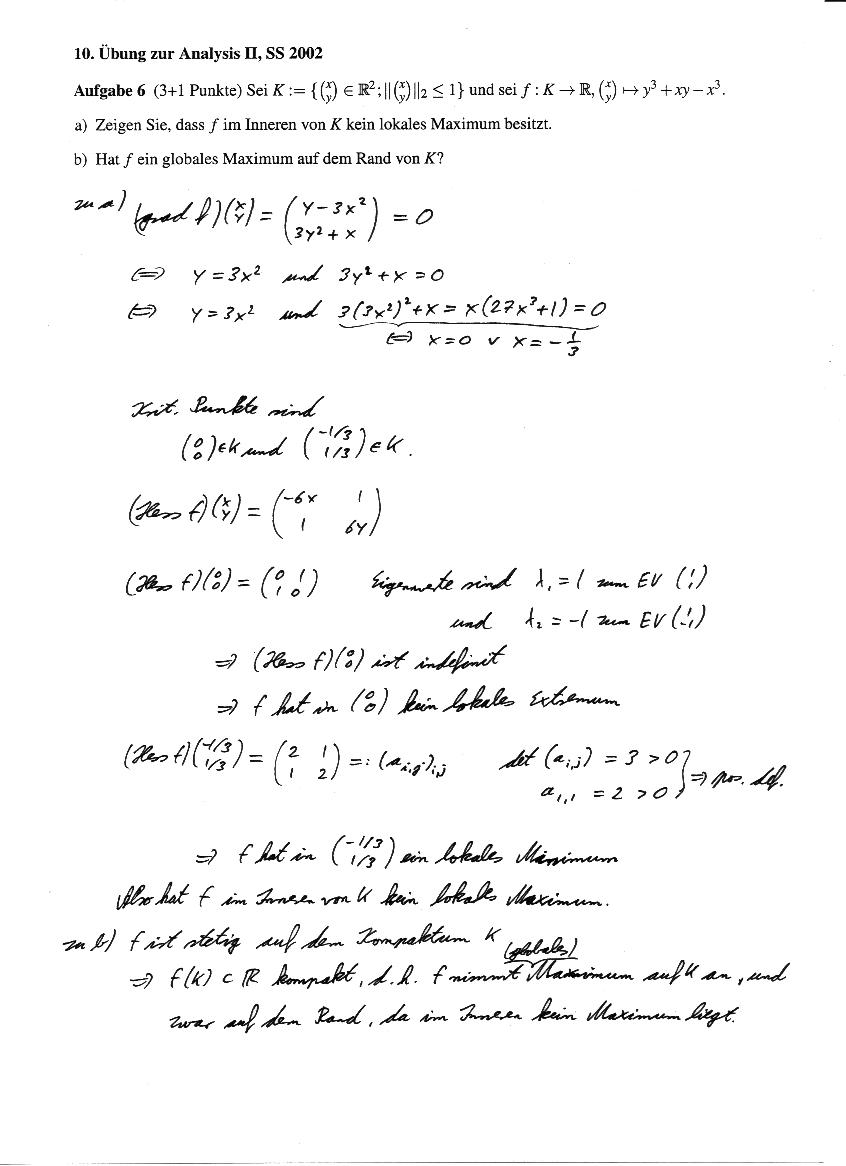 10. Übung zur Analysis II, SS 2002
Aufgabe 6 (3+1 Punkte) Sei K := {(x y) ∈ ℝ²; ||(x y)||₂ ≤ 1} und sei f : K → ℝ, (x y) ↦ y³ + xy − x³.
a) Zeigen Sie, dass f im Inneren von K kein lokales Maximum besitzt.
b) Hat f ein globales Maximum auf dem Rand von K?
zu a) (grad f)(x y) = (y − 3x² 3y² + x) = 0
⇔ y = 3x² und 3y² + x = 0
⇔ y = 3x² und 3(3x²)² + x = x(27x³+1) = 0
⇔ x=0 ∨ x = −1/3
Krit. Punkte sind
(0 0) ∈ K und (−1/3 1/3) ∈ K.
(Hess f)(x y) = (−6x 1 1 6y)
(Hess f)(0 0) = (0 1 1 0) Eigenwerte sind λ₁ = 1 zum EV (1 1)
und λ₂ = −1 zum EV (1 −1)
⇒ (Hess f)(0 0) ist indefinit
⇒ f hat in (0 0) kein lokales Extremum
(Hess f)(−1/3 1/3) = (2 1 1 2) =: (a_{i,j})_{i,j} det (a_{i,j}) = 3 > 0
a_{1,1} = 2 > 0 } ⇒ pos. def.
⇒ f hat in (−1/3 1/3) ein lokales Minimum
Also hat f im Inneren von K kein lokales Maximum.
zu b) f ist stetig auf dem Kompaktum K
(globales)
⇒ f(K) ⊂ ℝ kompakt, d.h. f nimmt Maximum auf K an, und
zwar auf dem Rand, da im Inneren kein Maximum liegt.